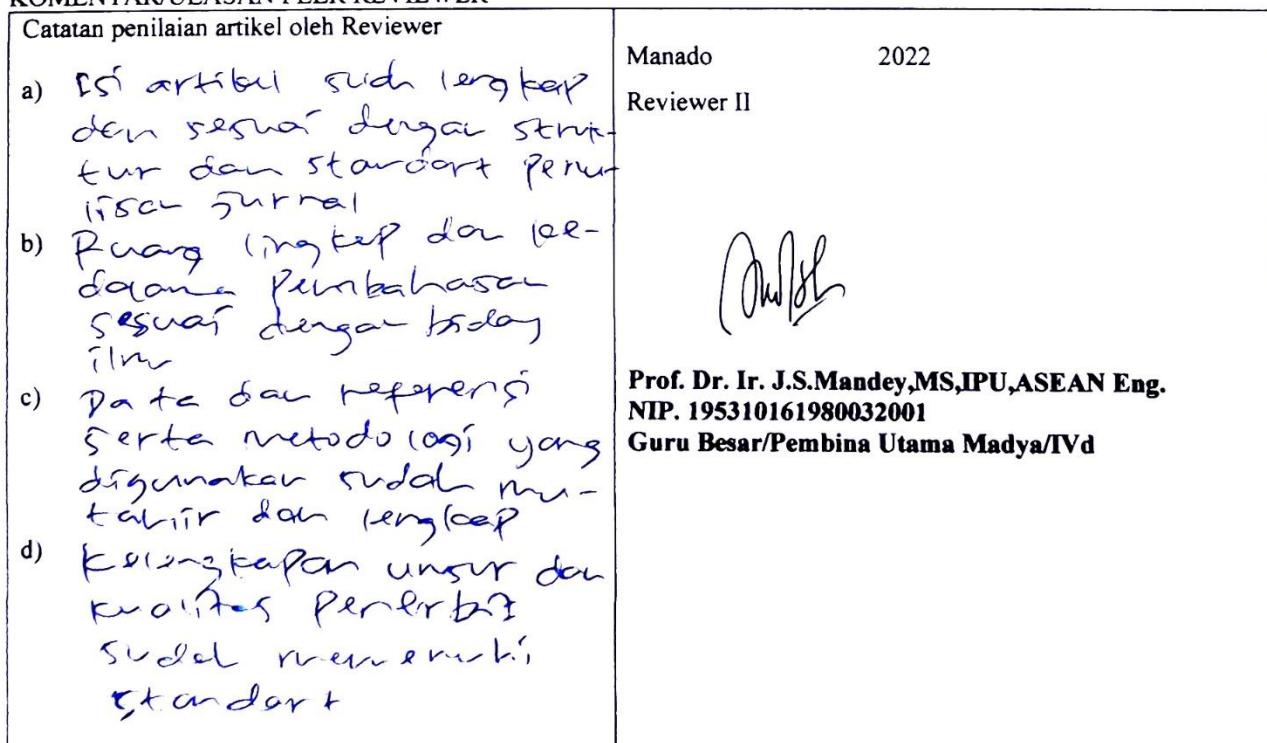 KOMENTAR/ULASAN PEER REVIEWER
Catatan penilaian artikel oleh Reviewer
a) Isi artikel sudah lengkap
dan sesuai dengan struk-
tur dan standart penu-
lisan jurnal
b) Ruang lingkup dan ke-
dalaman pembahasan
sesuai dengan bidang
ilmu
c) Data dan referensi
serta metodologi yang
digunakan sudah mu-
tahir dan lengkap
d) Kelengkapan unsur dan
kualitas penerbit
sudah memenuhi
standart
Manado 2022
Reviewer II
Prof. Dr. Ir. J.S.Mandey,MS,IPU,ASEAN Eng.
NIP. 195310161980032001
Guru Besar/Pembina Utama Madya/IVd